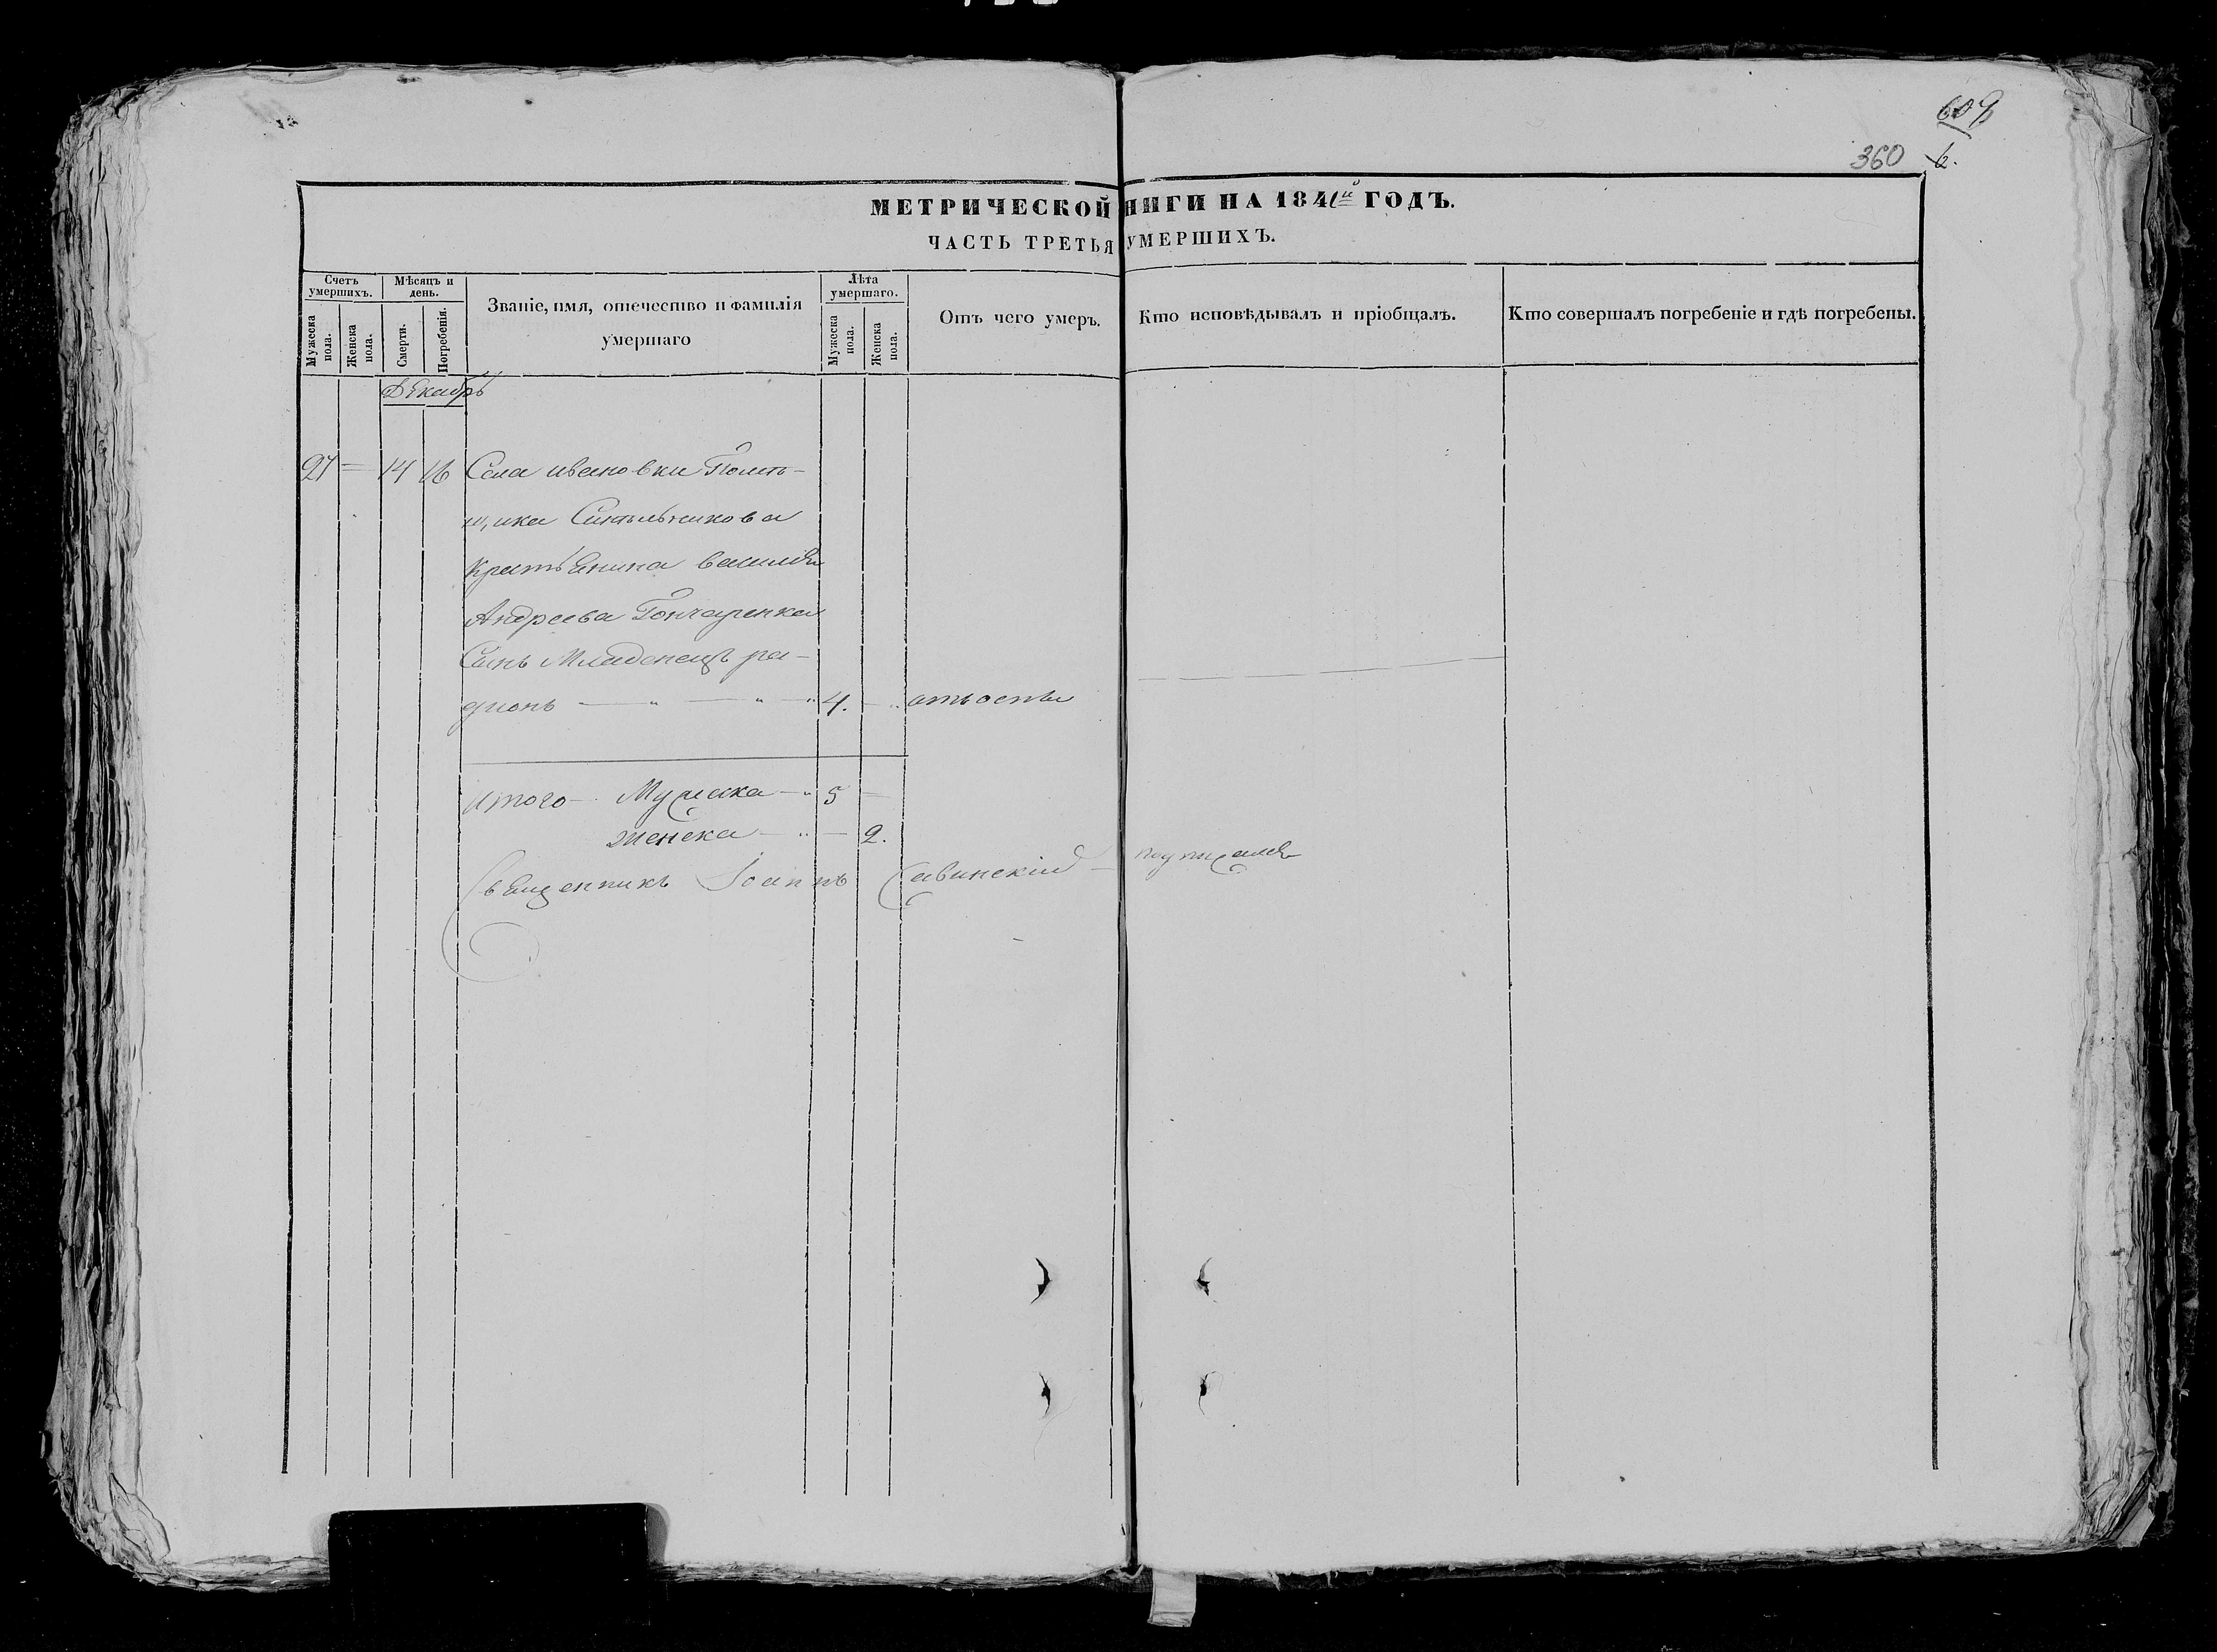 609
360
МЕТРИЧЕСКОЙ НИГИ НА 1841й ГОДЪ.
ЧАСТЬ ТРЕТЬЯ УМЕРШИХЪ.
Счетъ умершихъ.
Мужеска пола.
Женска пола.
Мѣсяцъ и день.
Смерти.
Погребенія.
Званіе, имя, отечество и фамилія умершаго
Лѣта умершаго.
Мужеска пола.
Женска пола.
Отъ чего умеръ.
Кто исповѣдывалъ и пріобщалъ.
Кто совершалъ погребеніе и гдѣ погребены.
Декабрь
27 = 14 16 Села ивановки Помѣ-
щика
крестьЕнина василія
Андреева Гончаренка
Сынъ Младенецъ ра-
дионъ 4. отъ оспы
итого Мужеска 5
женска 2.
СвЕщенникъ Іоаннъ Савинскій подписалса